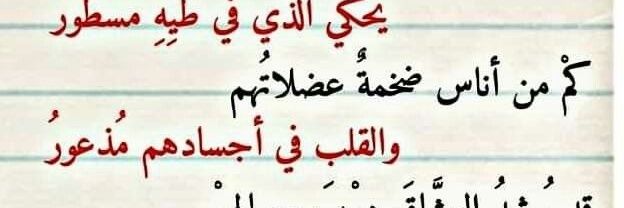 يحكي الذي في طيِهِ مسطور
كمْ من أناس ضخمةٌ عضلاتُهم
والقلب في أجسادهم مُذعورُ